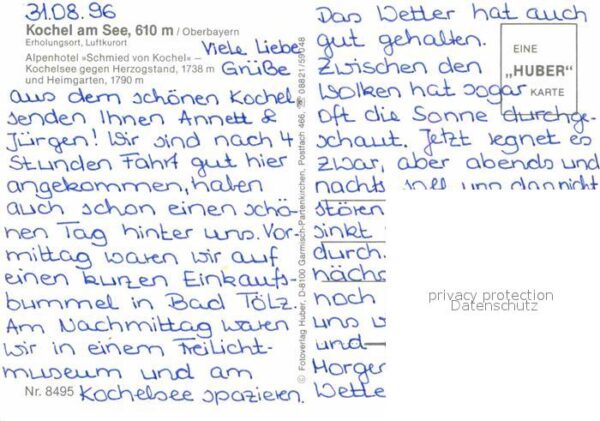 31.08.96
Kochel am See, 610 m / Oberbayern
Erholungsort, Luftkurort
Alpenhotel »Schmied von Kochel« –
Kochelsee gegen Herzogstand, 1738 m
und Heimgarten, 1790 m
Viele Liebe
Grüße
aus dem schönen Kochel
senden Ihnen Annett &
Jürgen! Wir sind nach 4
Stunden Fahrt gut hier
angekommen, haben
auch schon einen schö-
nen Tag hinter uns. Vor-
mittag waren wir auf
einen kurzen Einkaufs-
bummel in Bad Tölz.
Am Nachmittag waren
wir in einem Freilicht-
museum und am
Kochelsee spazieren.
Nr. 8495
© Fotoverlag Huber, D-8100 Garmisch-Partenkirchen, Postfach 466, ☎ 08821/59348
Das Wetter hat auch
gut gehalten.
Zwischen den
Wolken hat sogar
oft die Sonne durchge-
schaut. Jetzt regnet es
zwar, aber abends und
nachts soll uns das nicht
stören
sinkt
durch.
nächs
noch
uns
und
Morgen
Wette
EINE
„HUBER"
KARTE
privacy protection
Datenschutz